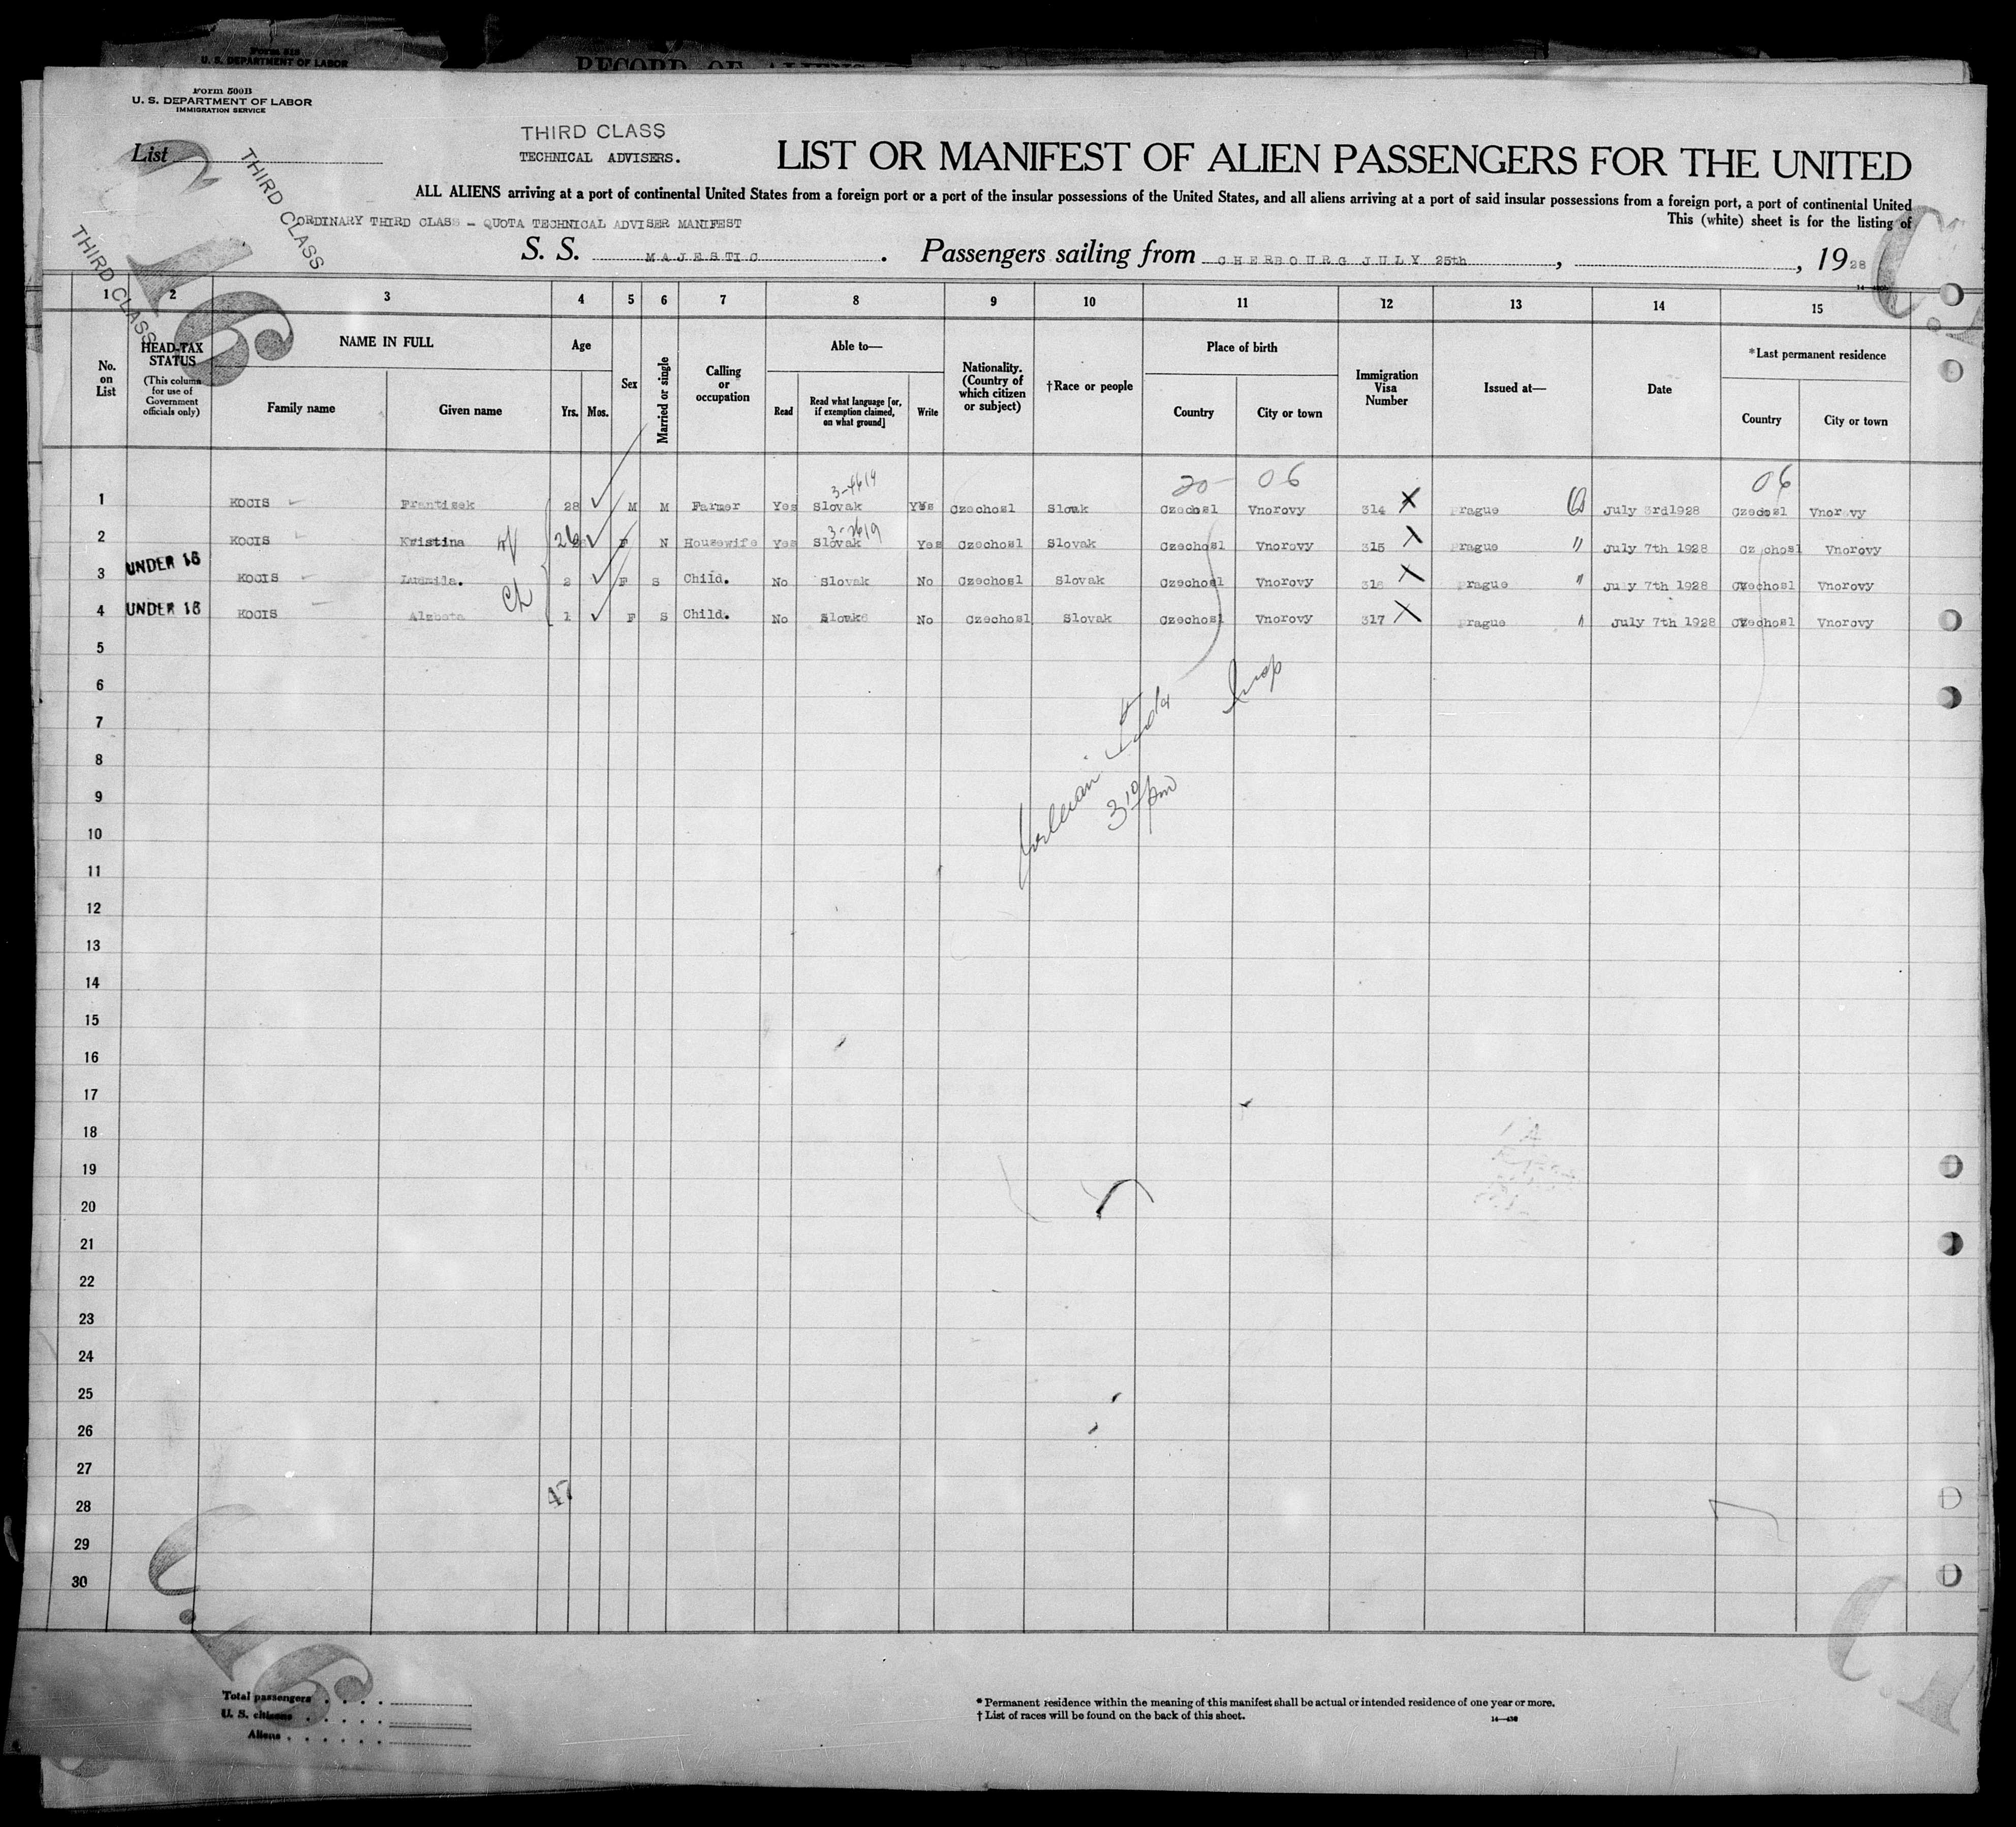 Form 500B
U. S. DEPARTMENT OF LABOR
IMMIGRATION SERVICE
Form 518
U. S. DEPARTMENT OF LABOR
RECORD OF ALIENS
List
THIRD CLASS
THIRD CLASS
THIRD CLASS
TECHNICAL ADVISERS.
LIST OR MANIFEST OF ALIEN PASSENGERS FOR THE UNITED
ALL ALIENS arriving at a port of continental United States from a foreign port or a port of the insular possessions of the United States, and all aliens arriving at a port of said insular possessions from a foreign port, a port of continental United
This (white) sheet is for the listing of
ORDINARY THIRD CLASS - QUOTA TECHNICAL ADVISER MANIFEST
S. S. MAJESTIC. Passengers sailing from CHERBOURG JULY 25th, , 1928
1 2 3 4 5 6 7 8 9 10 11 12 13 14 15
No. on List
HEAD-TAX STATUS
(This column for use of Government officials only)
NAME IN FULL
Family name
Given name
Age
Yrs. Mos.
Sex
Married or single
Calling or occupation
Able to—
Read
Read what language [or, if exemption claimed, on what ground]
Write
Nationality. (Country of which citizen or subject)
†Race or people
Place of birth
Country
City or town
Immigration Visa Number
Issued at—
Date
*Last permanent residence
Country
City or town
20 06 06
1 KOCIS Frantisek 28 M M Farmer Yes Slovak Yes Czechosl Slovak Czechosl Vnorovy 314 Prague July 3rd1928 Czechosl Vnorovy
2 KOCIS Kristina wf 26 F N Housewife Yes Slovak Yes Czechosl Slovak Czechosl Vnorovy 315 Prague " July 7th 1928 Czechosl Vnorovy
UNDER 16
3 KOCIS Ludmila. 2 F S Child. No Slovak No Czechosl Slovak Czechosl Vnorovy 316 Prague " July 7th 1928 Czechosl Vnorovy
ch
4 UNDER 16 KOCIS Alzbeta 1 F S Child. No Slovak No Czechosl Slovak Czechosl Vnorovy 317 Prague " July 7th 1928 Czechosl Vnorovy
5
6
Insp
7
8
9
3 10 pm
10
11
12
13
14
15
16
17
18
19
20
21
22
23
24
25
26
27
28
47
29
30
Total passengers
U. S. citizens
Aliens
* Permanent residence within the meaning of this manifest shall be actual or intended residence of one year or more.
† List of races will be found on the back of this sheet.